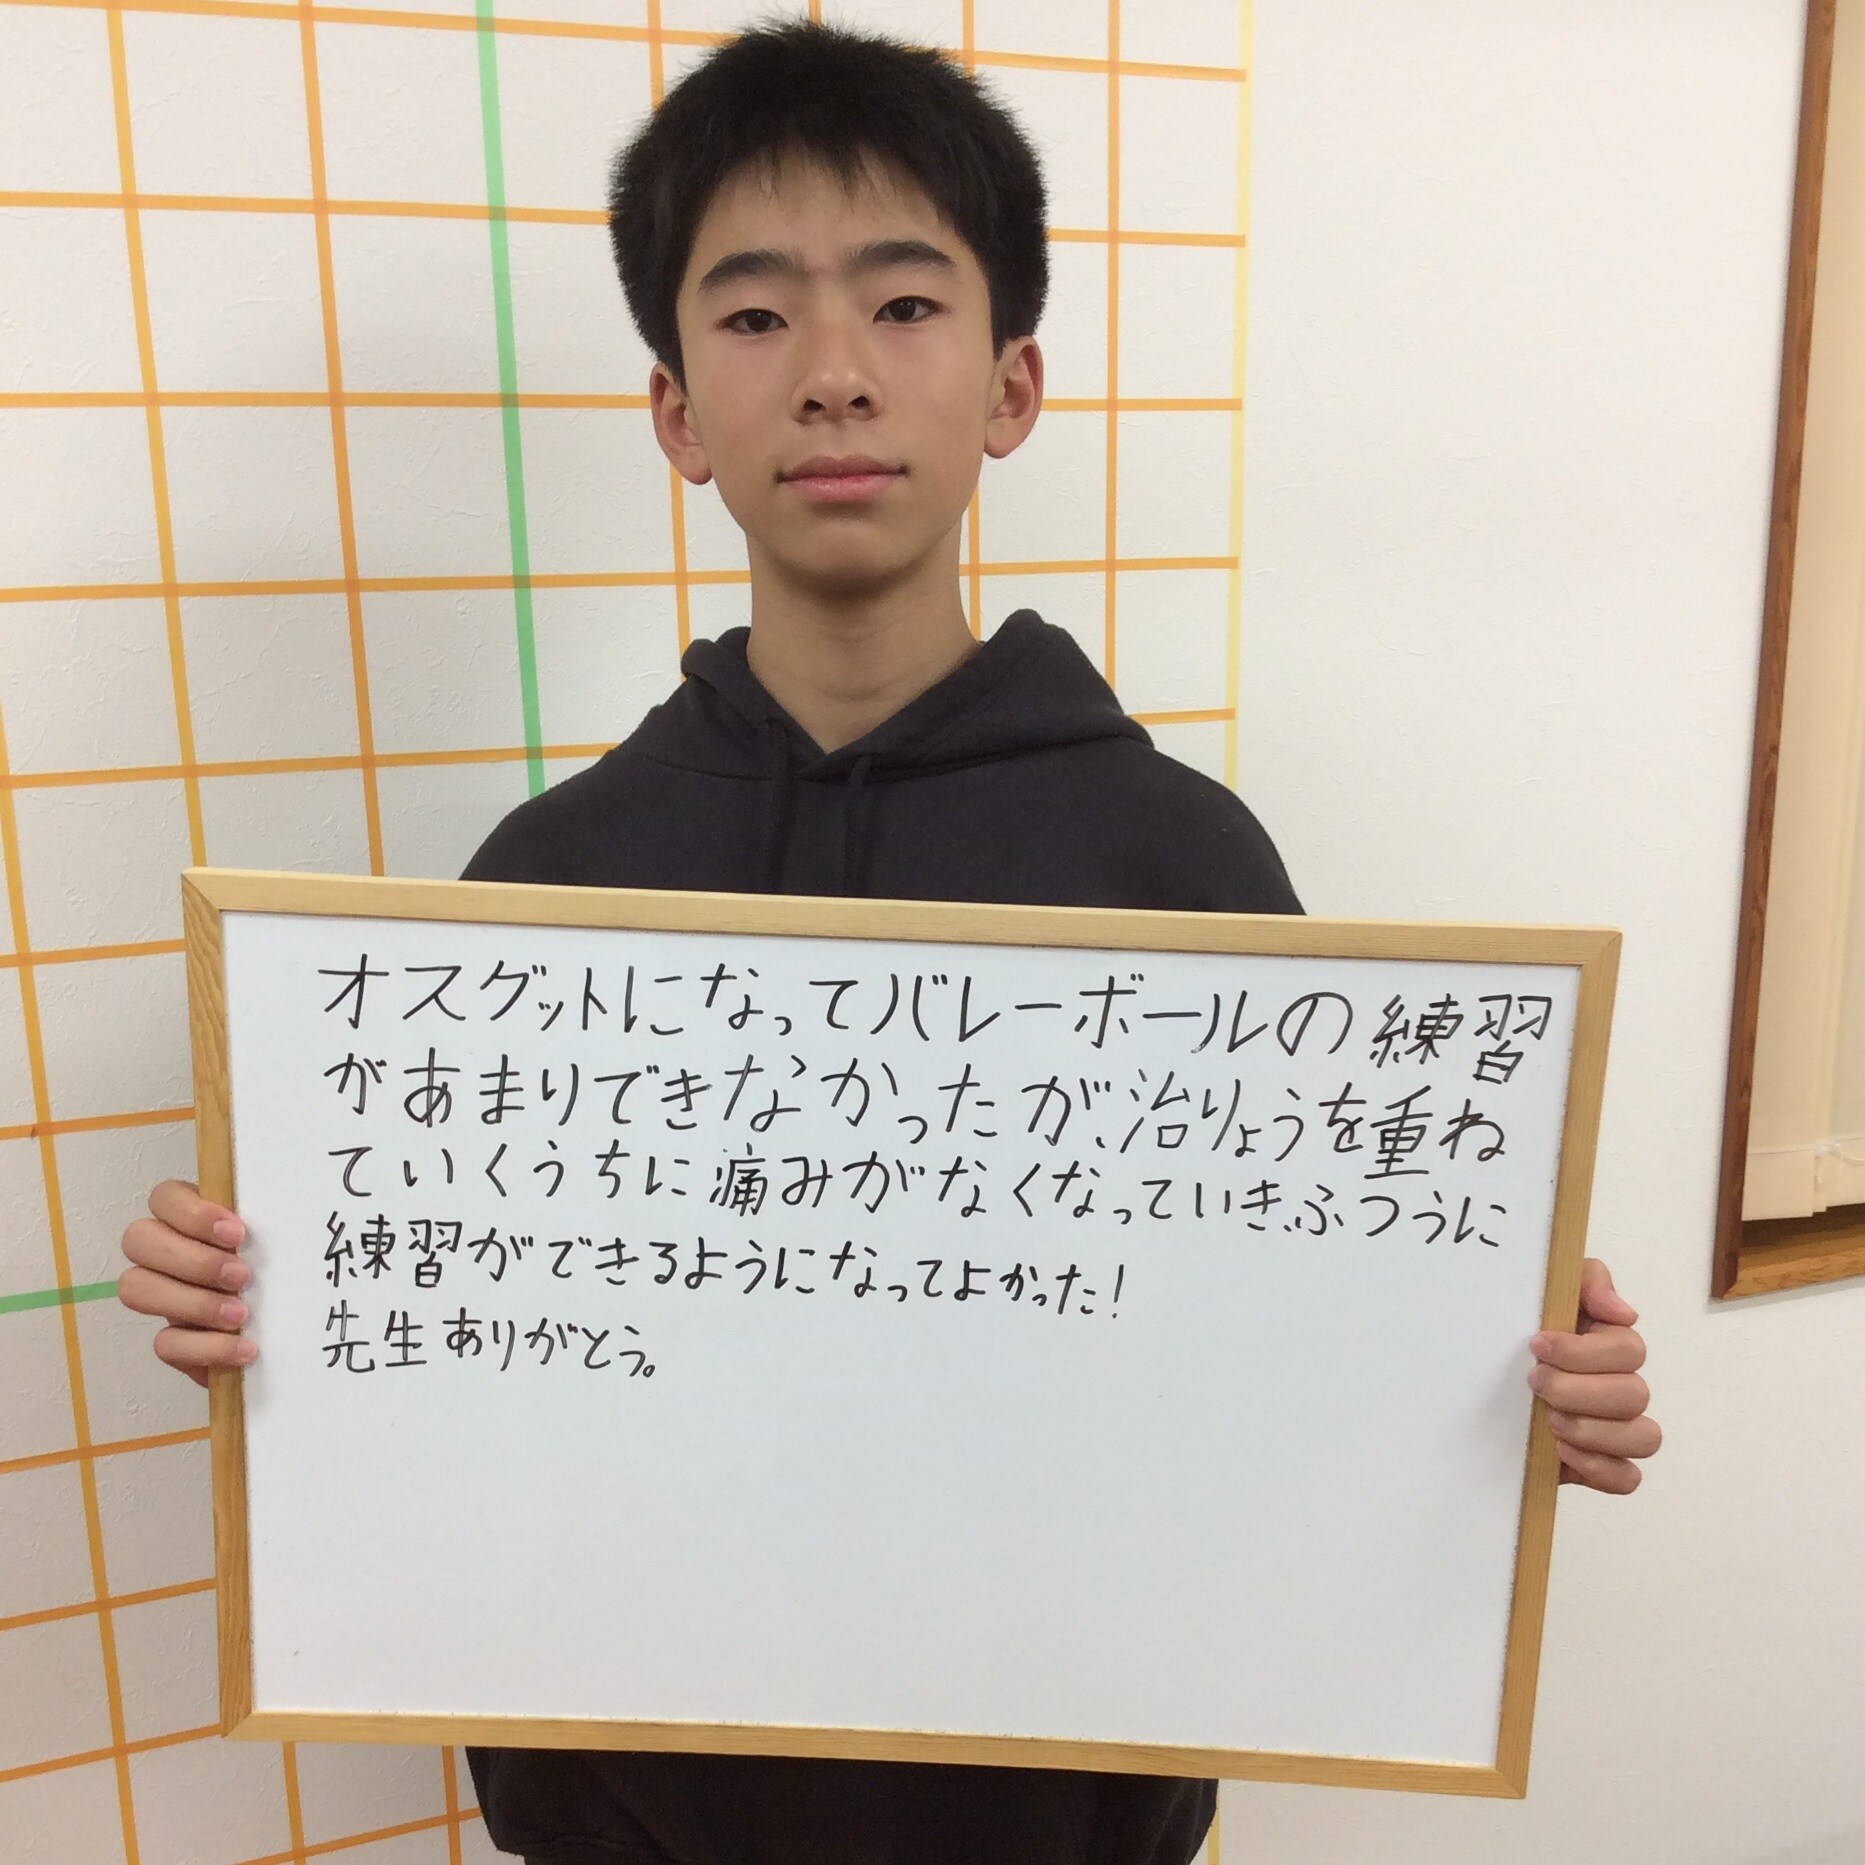 オスグットになってバレーボールの練習
があまりできなかったが、治りょうを重ね
ていくうちに痛みがなくなっていき、ふつうに
練習ができるようになってよかった！
先生ありがとう。